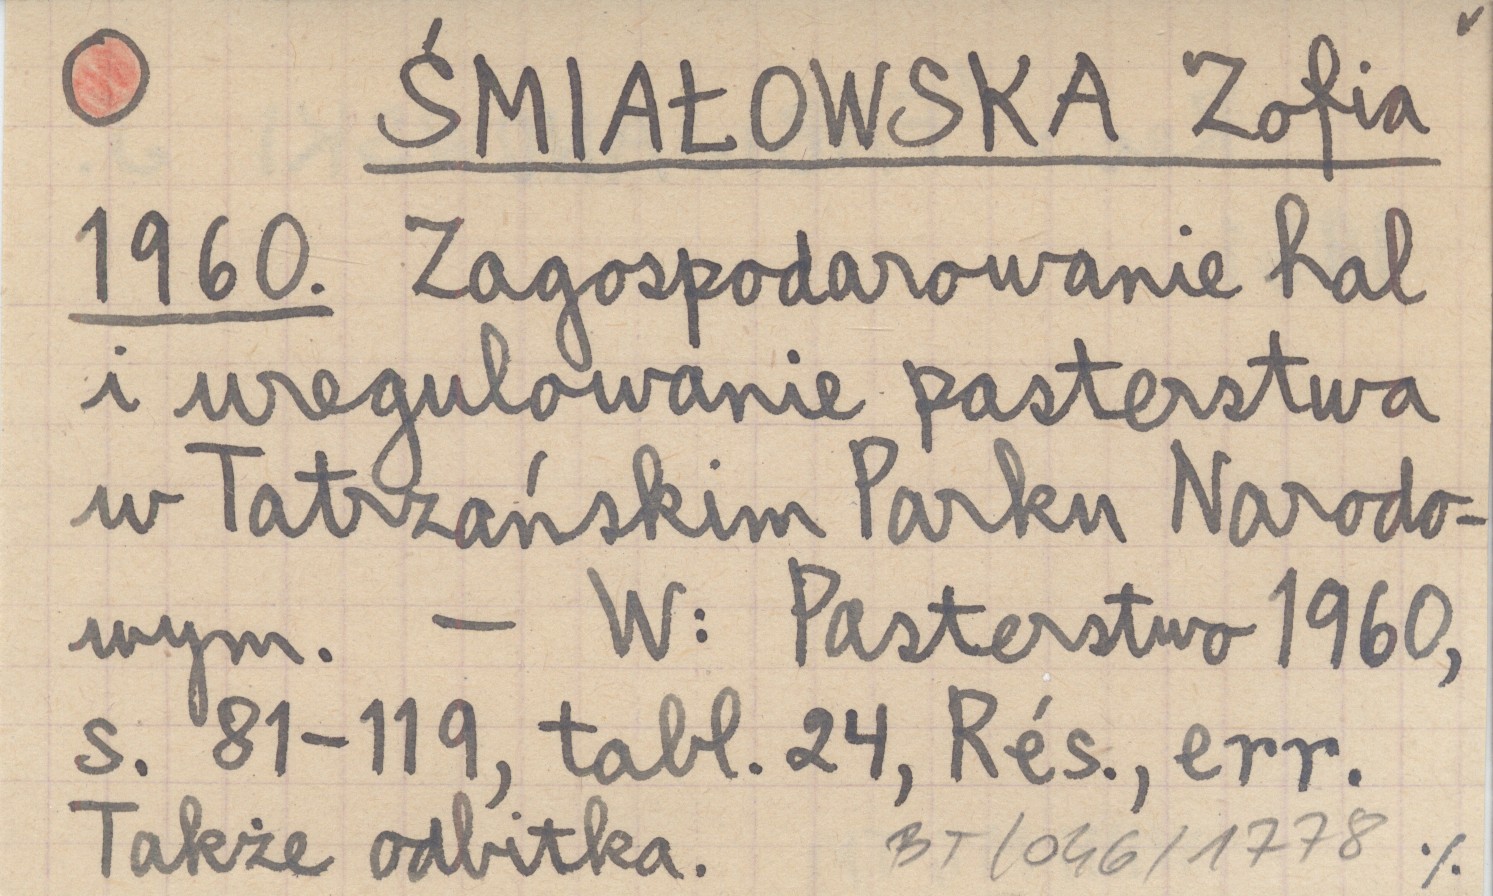 ŚMIAŁOWSKA Zofia
1960. Zagospodarowanie hal
i uregulowanie pasterstwa
w Tatrzańskim Parku Narodo-
wym. — W: Pasterstwo 1960,
s. 81-119, tabl. 24, Rés., err.
Także odbitka. BT/046/1778 ·/.